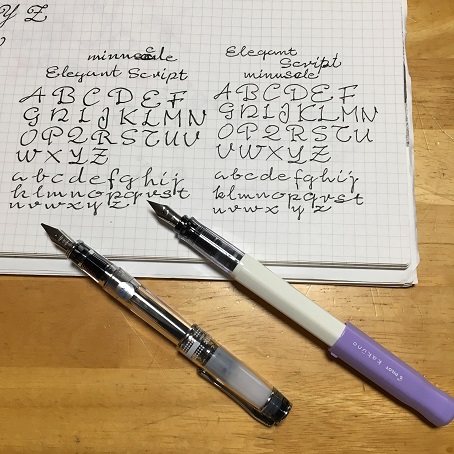 Y Z
minuscle
Elegant Script
A B C D E F
G H I J K L M N
O P Q R S T U V
W X Y Z
a b c d e f g h i j
k l m n o p q r s t
u v w x y z
Elegant
Script
minuscle
A B C D E F
G H I J K L M N
O P Q R S T U V
W X Y Z
a b c d e f g h i j
k l m n o p q r s t
u v w x y z
PILOT kakuno